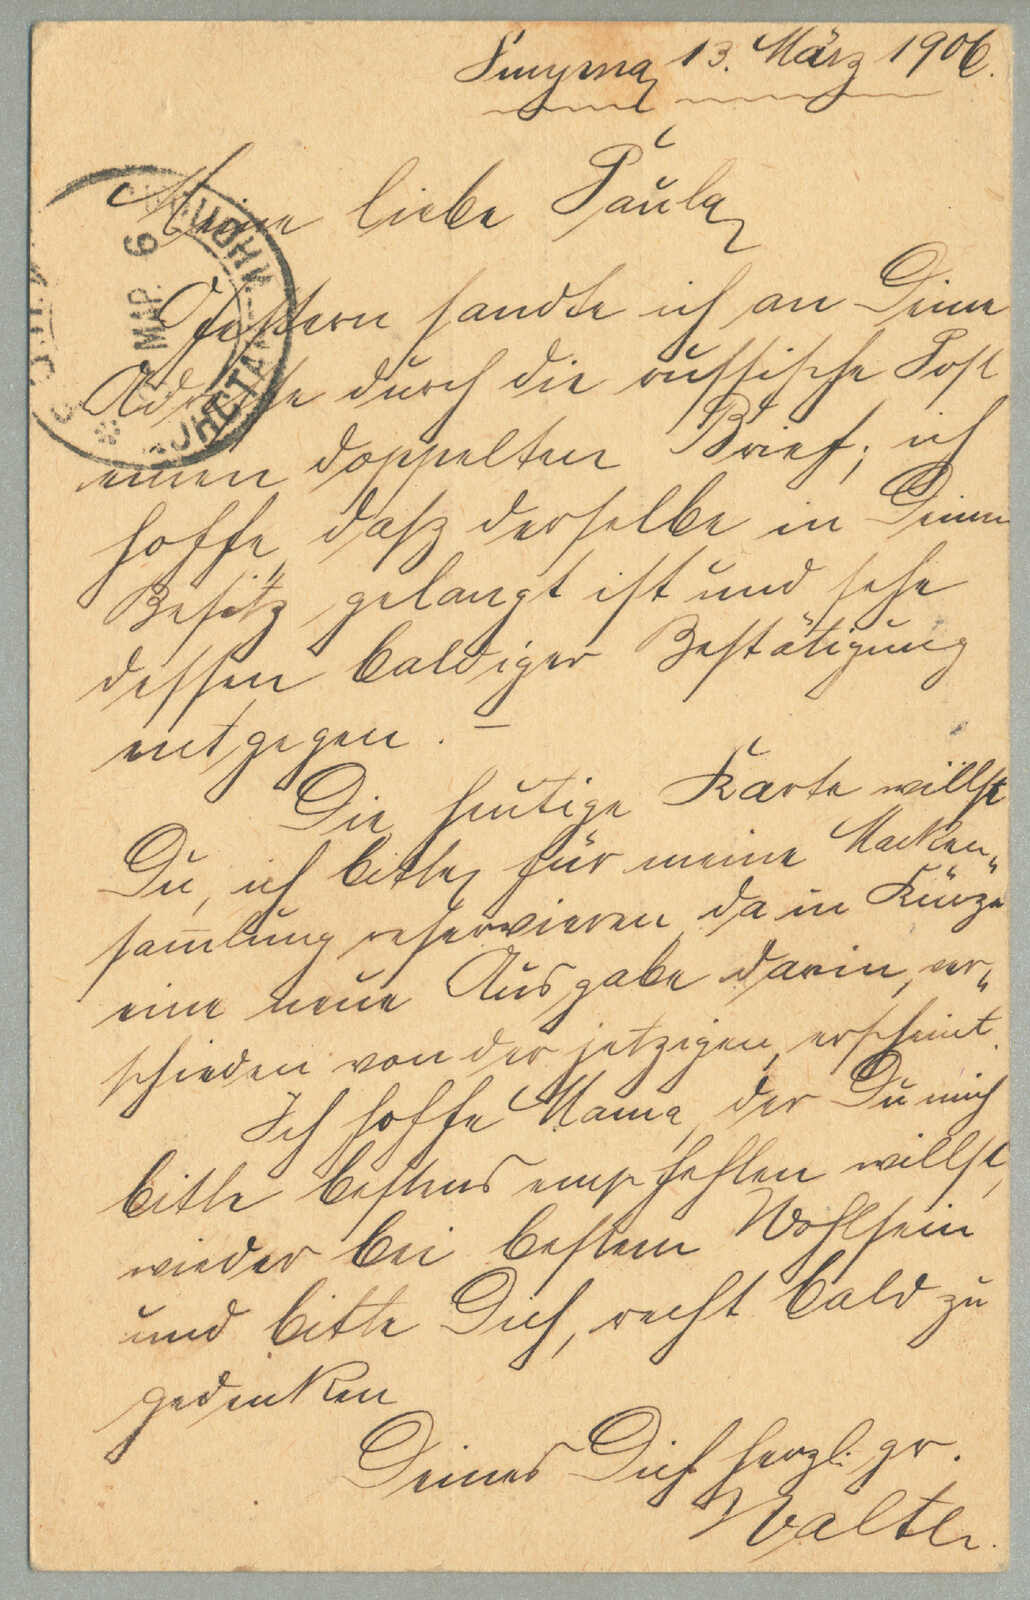 Smyrna, 13. März 1906.
Meine liebe Paula,
Gestern sandte ich an Deine
Adresse durch die russische Post
einen doppelten Brief; ich
hoffe, daß derselbe in Deinen
Besitz gelangt ist und sehe
dessen baldiger Bestätigung
entgegen. –
Die heutige Karte willst
Du, ich bitte, für meine Marken-
sam̅lung reservieren, da in Kürze
eine neue Ausgabe darin, ver-
schieden von der jetzigen, erscheint.
Ich hoffe Mama, der Du mich
bitte bestens empfehlen willst,
wieder bei bestem Wohlsein
und bitte Dich, recht bald zu
gedenken
Deines Dich herzl. gr.
Walter.
МАР. 6